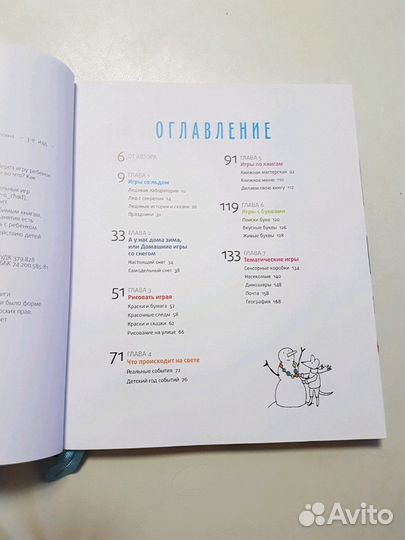 УДК 379.828
ББК 74.200.585.81
ОГЛАВЛЕНИЕ
6 ОТ АВТОРА
9 ГЛАВА 1
Игры со льдом
Ледовая лаборатория 10
Лед с секретом 14
Ледяные истории и сказки 20
Праздники 31
33 ГЛАВА 2
А у нас дома зима,
или Домашние игры
со снегом
Настоящий снег 34
Самодельный снег 38
51 ГЛАВА 3
Рисовать играя
Краски и бумага 52
Красочные следы 58
Краски и сказки 62
Рисование на улице 66
71 ГЛАВА 4
Что происходит на свете
Реальные события 72
Детский год событий 76
91 ГЛАВА 5
Игры по книгам
Книжная мастерская 92
Книжное меню 110
Делаем свою книгу 112
119 ГЛАВА 6
Игры с буквами
Поиски букв 120
Вкусные буквы 126
Живые буквы 128
133 ГЛАВА 7
Тематические игры
Сенсорные коробки 134
Насекомые 140
Динозавры 148
Почта 158
География 168
Avito